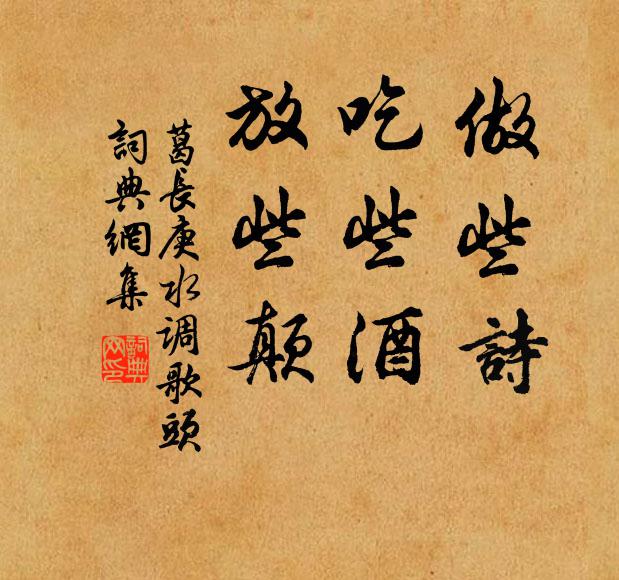 做些詩
吃些酒
放些顛
葛長庚水调歌頭
詞典網集
詞典
网印